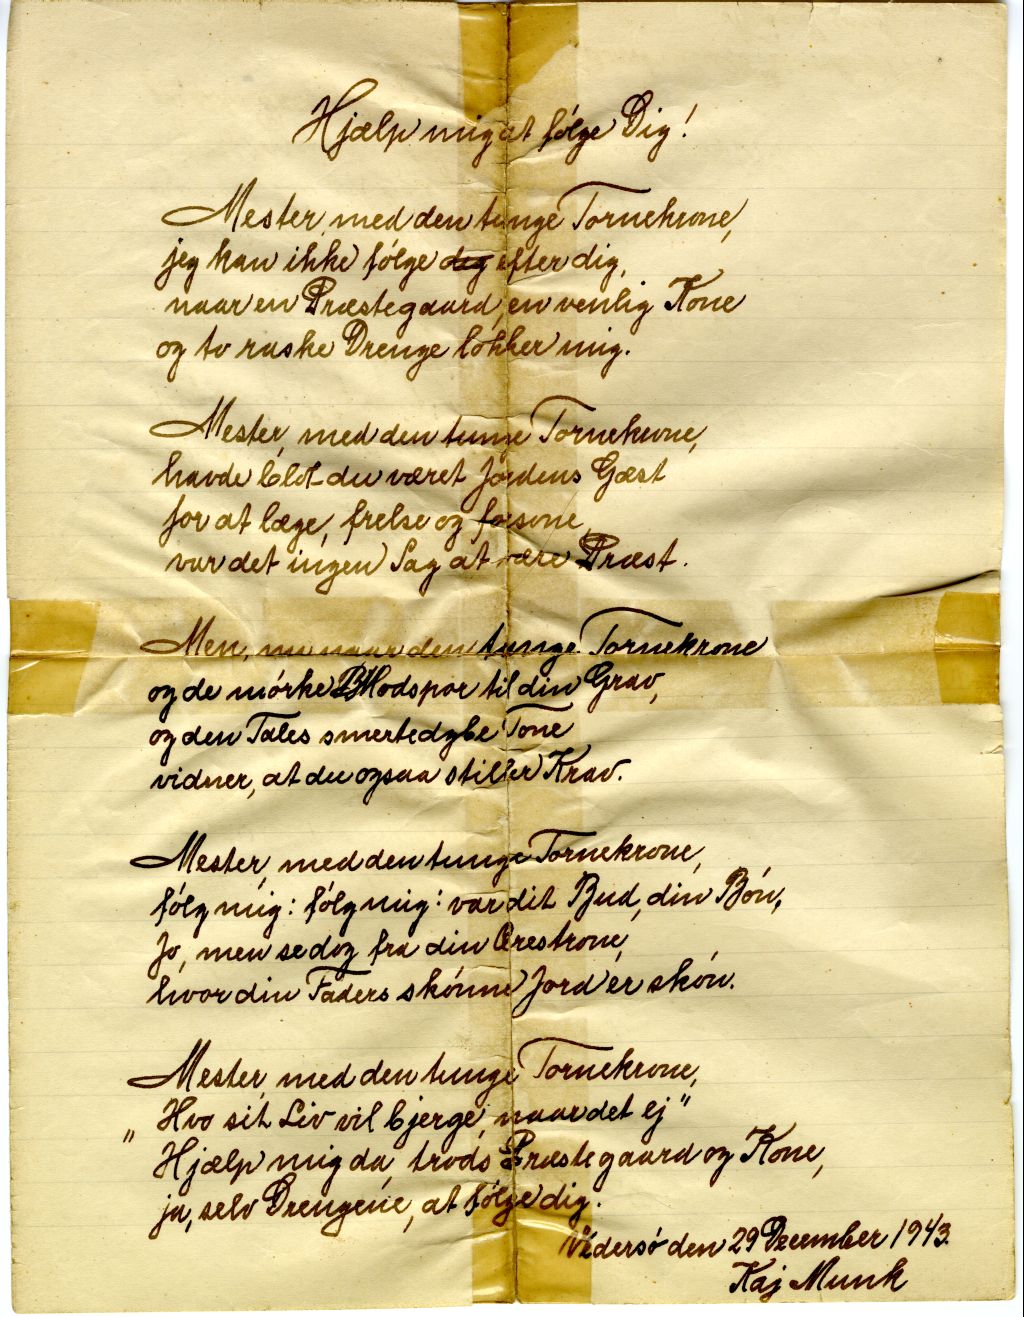 Hjælp mig at følge Dig!
Mester, med den tunge Tornekrone,
jeg kan ikke følge dig efter dig,
naar en Præstegaard, en venlig Kone
og to raske Drenge lokker mig.
Mester, med den tunge Tornekrone,
havde blot du været Jordens Gæst
for at læge, frelse og forsone,
var det ingen Sag at være Præst.
Men, nu naar den tunge Tornekrone
og de mørke Blodspor til din Grav,
og den Tales smertedybe Tone
vidner, at du ogsaa stiller Krav.
Mester, med den tunge Tornekrone,
følg mig: følg mig: var dit Bud, din Bøn,
Jo, men se dog fra din Ærestrone,
hvor din Faders skønne Jord er skøn.
Mester, med den tunge Tornekrone,
„Hvo sit Liv vil bjerge, naar det ej"
Hjælp mig da, trods Præstegaard og Kone,
ja, selv Drengene, at følge dig.
Vedersø den 29 December 1943.
Kaj Munk